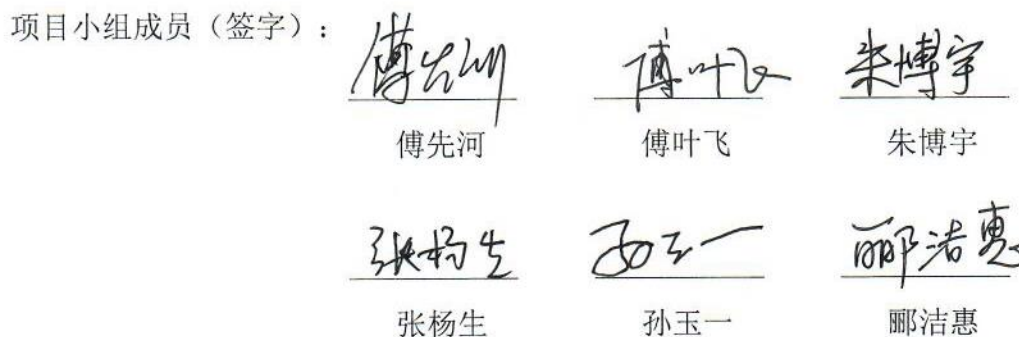 项目小组成员（签字）：
傅先河 傅叶飞 朱博宇
傅先河 傅叶飞 朱博宇
张杨生 孙玉一 郦洁惠
张杨生 孙玉一 郦洁惠